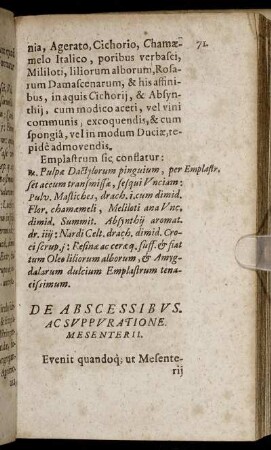 71.
nia, Agerato, Cichorio, Chamæ-
melo Italico, poribus verbasci,
Mililoti, liliorum alborum, Rosa-
rum Damascenarum, & his affini-
bus, in aquis Cichorij, & Absyn-
thij, cum modico aceti, vel vini
communis, excoquendis, & cum
spongiâ, vel in modum Duciæ, te-
pidè admovendis.
Emplastrum sic conflatur:
Pulpæ Dactylorum pinguium, per
Emplastr.
set aceum transmissæ, sesqui Vnciam:
Pulv. Mastiches, drach. i. cum dimid.
Flor. chamæmeli, Meliloti ana Vnc.
dimid. Summit. Absinthij aromat.
dr. iiij: Nardi Celt. drach. dimid. Cro-
ci scrup. j: Resinæ ac ceræ q. suff. & fiat
cum Oleo liliorum alborum, & Amyg-
dalarum dulcium Emplastrum tena-
cissimum.
DE ABSCESSIBVS.
AC SVPPVRATIONE
MESENTERII.
Evenit quandoq; ut Mesente-
rij